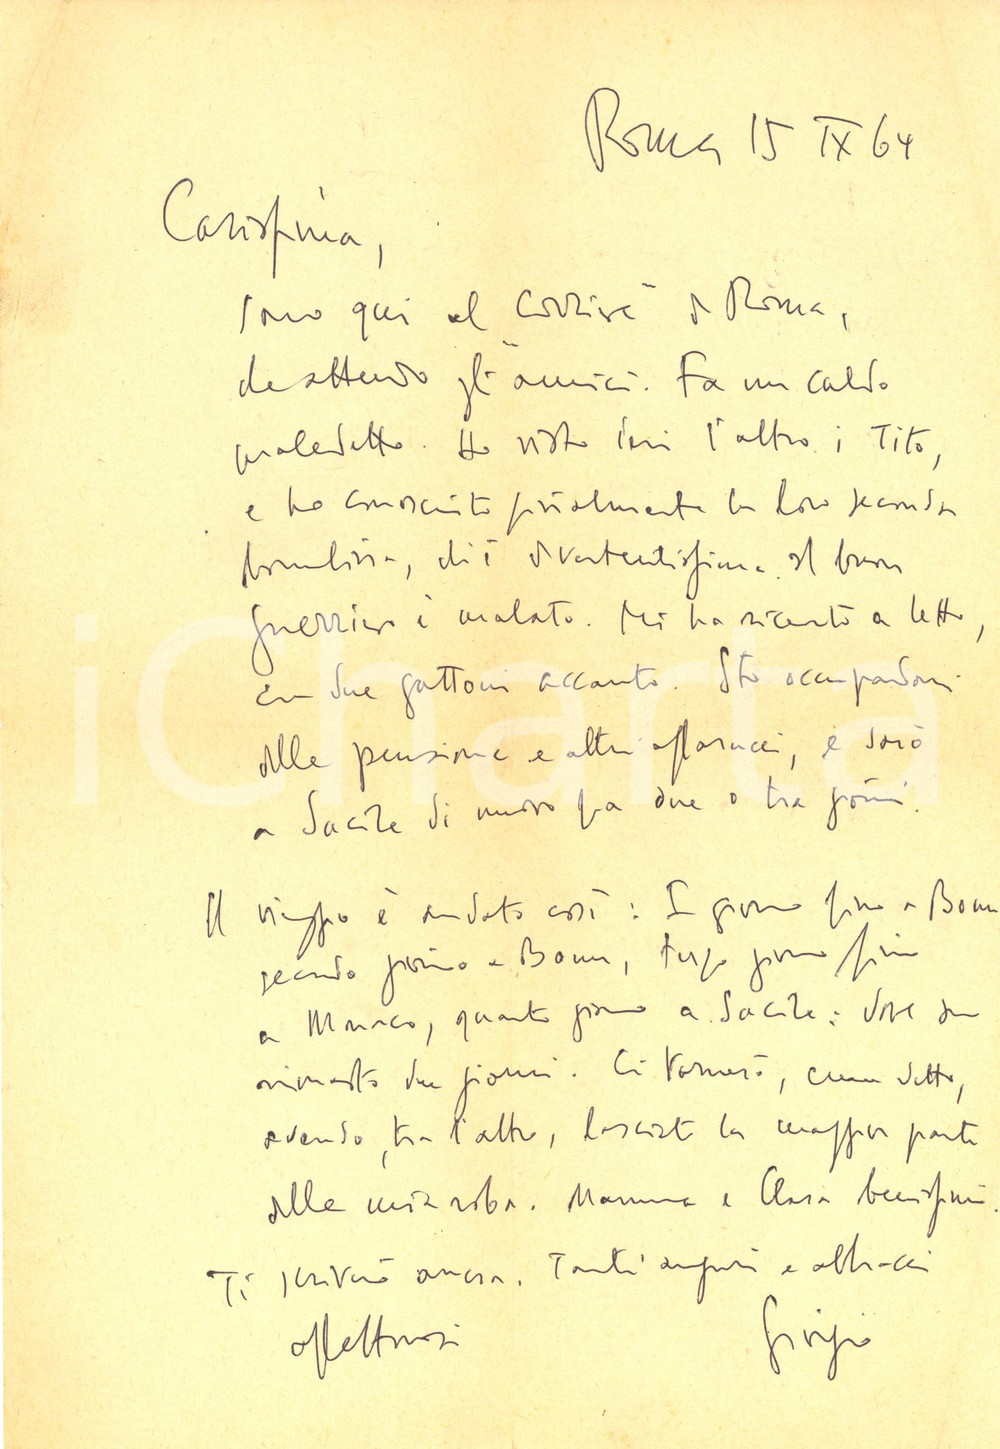 Roma 15 IX 64
Carissima,
sono qui al "Corriere" di Roma,
che attendo gli amici. Fa un caldo
maledetto. Ho visto ieri l'altro i Tito,
e ho conosciuto finalmente la loro seconda
bambina, ch'è divertentissima. Il buon
Guerriero è malato. Mi ha ricevuto a letto,
con due gattoni accanto. Sto occupandomi
della pensione e altri affarucci, e sarò
a Sacile di nuovo fra due o tre giorni.
Il viaggio è andato così: I giorno fino a Bonn
secondo giorno a Bonn, terzo giorno fino
a Monaco, quarto giorno a Sacile: dove son
rimasto due giorni. Ci tornerò, come detto,
avendo, tra l'altro, lasciato la maggior parte
della mia roba. Mamma e Clara benissimo.
Ti scriverò ancora. Tanti auguri e abbracci
affettuosi Giorgio
iCharta